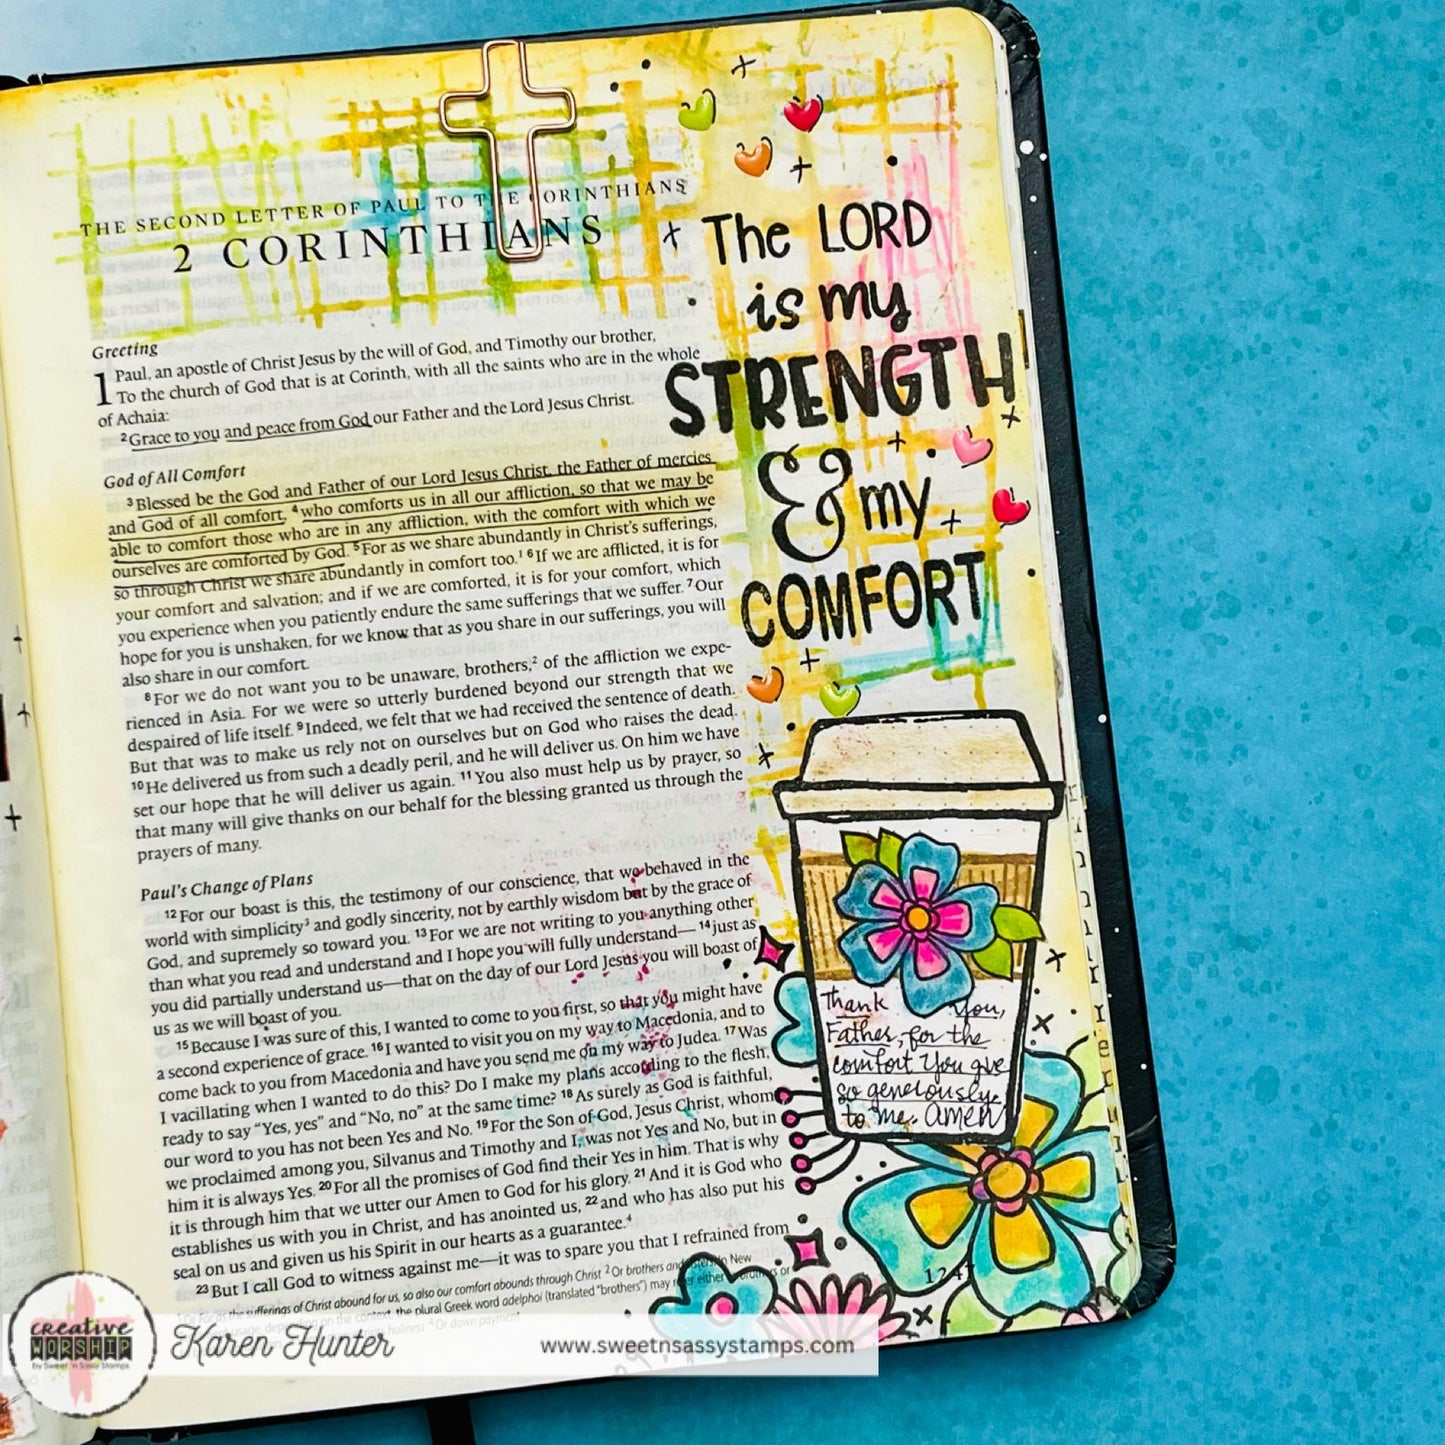 THE SECOND LETTER OF PAUL TO THE CORINTHIANS
2 CORINTHIANS
Greeting
1 Paul, an apostle of Christ Jesus by the will of God, and Timothy our brother,
To the church of God that is at Corinth, with all the saints who are in the whole
of Achaia:
2 Grace to you and peace from God our Father and the Lord Jesus Christ.
God of All Comfort
3 Blessed be the God and Father of our Lord Jesus Christ, the Father of mercies
and God of all comfort, 4 who comforts us in all our affliction, so that we may be
able to comfort those who are in any affliction, with the comfort with which we
ourselves are comforted by God. 5 For as we share abundantly in Christ's sufferings,
so through Christ we share abundantly in comfort too.1 6 If we are afflicted, it is for
your comfort and salvation; and if we are comforted, it is for your comfort, which
you experience when you patiently endure the same sufferings that we suffer. 7 Our
hope for you is unshaken, for we know that as you share in our sufferings, you will
also share in our comfort.
8 For we do not want you to be unaware, brothers,2 of the affliction we expe-
rienced in Asia. For we were so utterly burdened beyond our strength that we
despaired of life itself. 9 Indeed, we felt that we had received the sentence of death.
But that was to make us rely not on ourselves but on God who raises the dead.
10 He delivered us from such a deadly peril, and he will deliver us. On him we have
set our hope that he will deliver us again. 11 You also must help us by prayer, so
that many will give thanks on our behalf for the blessing granted us through the
prayers of many.
Paul's Change of Plans
12 For our boast is this, the testimony of our conscience, that we behaved in the
world with simplicity3 and godly sincerity, not by earthly wisdom but by the grace of
God, and supremely so toward you. 13 For we are not writing to you anything other
than what you read and understand and I hope you will fully understand— 14 just as
you did partially understand us—that on the day of our Lord Jesus you will boast of
us as we will boast of you.
15 Because I was sure of this, I wanted to come to you first, so that you might have
a second experience of grace. 16 I wanted to visit you on my way to Macedonia, and to
come back to you from Macedonia and have you send me on my way to Judea. 17 Was
I vacillating when I wanted to do this? Do I make my plans according to the flesh,
ready to say "Yes, yes" and "No, no" at the same time? 18 As surely as God is faithful,
our word to you has not been Yes and No. 19 For the Son of God, Jesus Christ, whom
we proclaimed among you, Silvanus and Timothy and I, was not Yes and No, but in
him it is always Yes. 20 For all the promises of God find their Yes in him. That is why
it is through him that we utter our Amen to God for his glory. 21 And it is God who
establishes us with you in Christ, and has anointed us, 22 and who has also put his
seal on us and given us his Spirit in our hearts as a guarantee.4
23 But I call God to witness against me—it was to spare you that I refrained from
sufferings of Christ abound for us, so also our comfort abounds through Christ 2 Or brothers and In New
the plural Greek word adelphoi (translated "brothers") may either
holiness 4 Or down payment
The LORD
is my
STRENGTH
& my
COMFORT
Thank You,
Father, for the
comfort You give
so generously
to me. Amen
creative
WORSHIP
by Sweet 'n Sassy Stamps
Karen Hunter
www.sweetnsassystamps.com